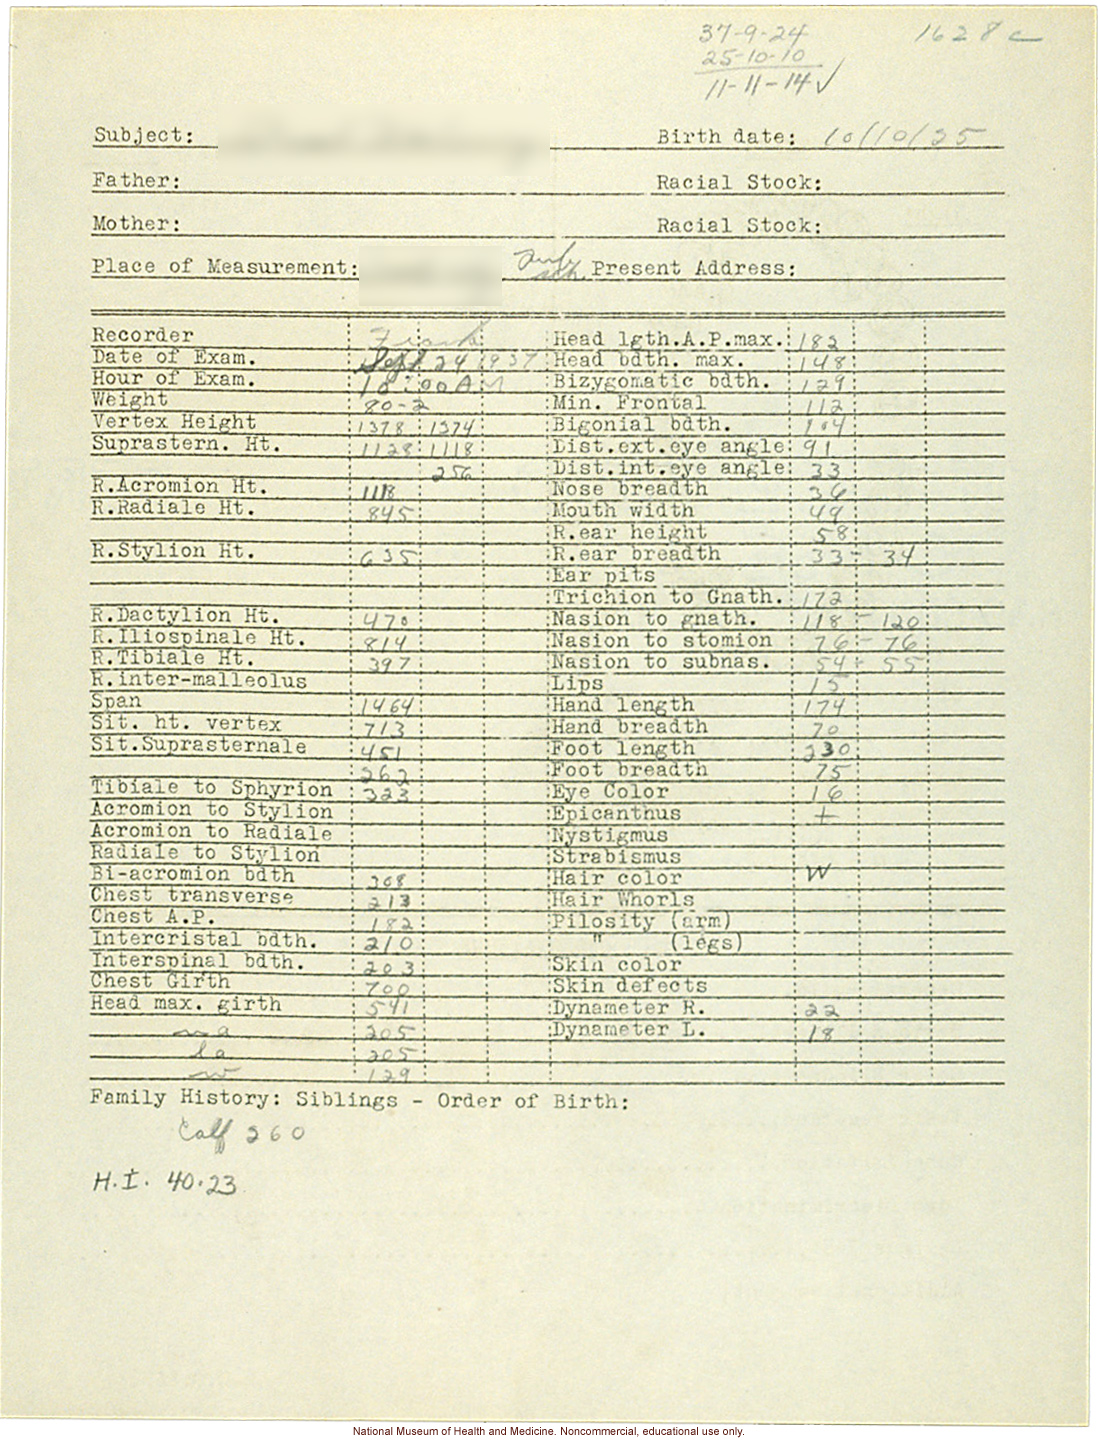 37-9-24
25-10-10
11-11-14 ✓
1628 c
Subject:
Birth date: 10/10/25
Father:
Racial Stock:
Mother:
Racial Stock:
Place of Measurement:
Present Address:
Recorder
Date of Exam. Sept 24 1937
Hour of Exam. 10:00 AM
Weight 80-2
Vertex Height 1378 1374
Suprastern. Ht. 1128 1118
256
R.Acromion Ht. 1118
R.Radiale Ht. 845
R.Stylion Ht. 635
R.Dactylion Ht. 470
R.Iliospinale Ht. 814
R.Tibiale Ht. 397
R.inter-malleolus
Span 1464
Sit. ht. vertex 713
Sit.Suprasternale 451
262
Tibiale to Sphyrion 323
Acromion to Stylion
Acromion to Radiale
Radiale to Stylion
Bi-acromion bdth 308
Chest transverse 213
Chest A.P. 182
Intercristal bdth. 210
Interspinal bdth. 203
Chest Girth 700
Head max. girth 541
205
la 205
w 129
Head lgth.A.P.max. 182
Head bdth. max. 148
Bizygomatic bdth. 129
Min. Frontal 112
Bigonial bdth. 104
Dist.ext.eye angle: 91
Dist.int.eye angle: 33
Nose breadth 36
Mouth width 49
R.ear height 58
R.ear breadth 33 - 34
Ear pits
Trichion to Gnath. 172
Nasion to gnath. 118 - 120
Nasion to stomion 76 - 76
Nasion to subnas. 54 - 55
Lips 15
Hand length 174
Hand breadth 70
Foot length 230
Foot breadth 75
Eye Color 16
Epicanthus +
Nystigmus
Strabismus
Hair color W
Hair Whorls
Pilosity (arm)
" (legs)
Skin color
Skin defects
Dynameter R. 22
Dynameter L. 18
Family History: Siblings - Order of Birth:
Calf 260
H.I. 40.23
National Museum of Health and Medicine. Noncommercial, educational use only.